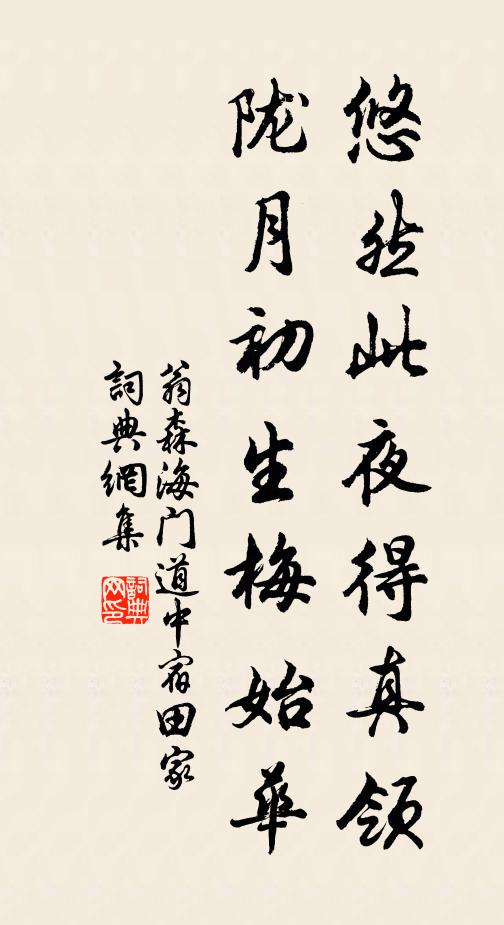 悠然此夜得真领
陇月初生梅始華
翁森海门道中宿田家
詞典網集
詞典网印